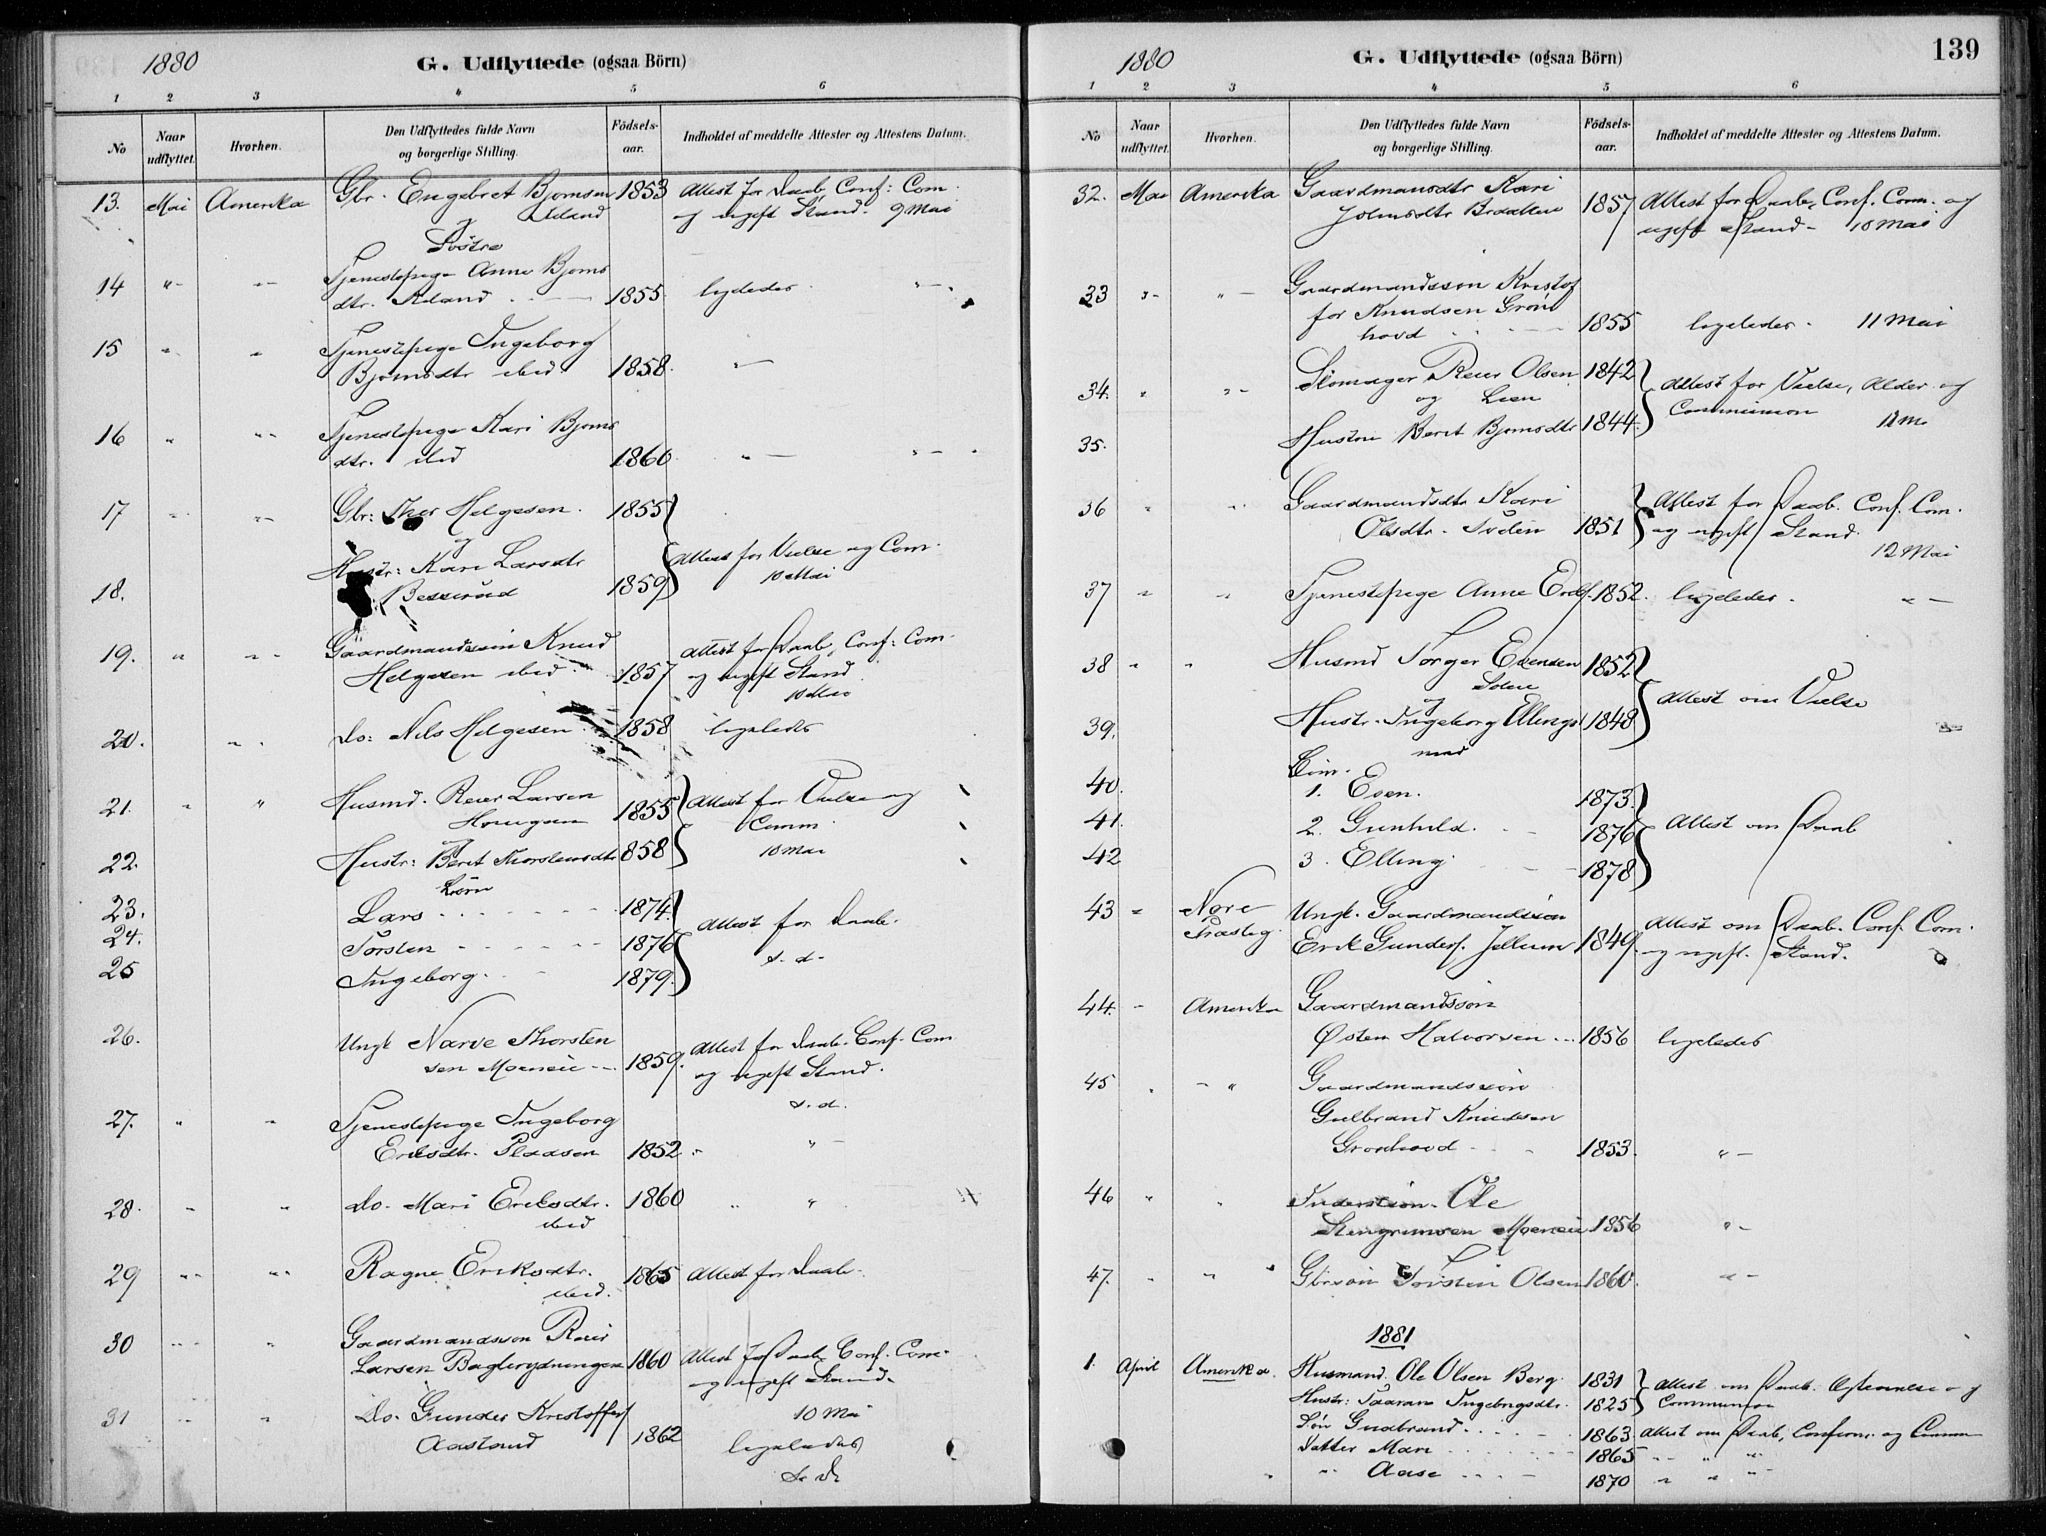 1880
G. Udflyttede (ogsaa Börn)
1 2 3 4 5 6
No
Naar udflyttet.
Hvorhen.
Den Udflyttedes fulde Navn og borgerlige Stilling.
Födsels-aar.
Indholdet af meddelte Attester og Attestens Datum.
13. Mai Amerika Gbr. Engebret Bjornsen 1853 Attest for Daab, Conf: Com.
og ugift Stand. 9 Mai
og
Söstre
14 "- "- Tjenestepige Anne Bjorns
dtr. 1855. ligeledes "-
15 " " Tjenestepige Ingeborg
Bjornsdtr ibid 1858. "-
16 " "- Tjenestepige Kari Bjorns
dtr. ibid 1860. "- "-
17 " "- Gbr: Iver Helgesen. 1855
og
Attest for Vielse og Com.
10 Mai
18. Hustr: Kari Larsdtr
Besserud 1859
19. " "- Gaardmandssön Knud
Helgesen ibid 1857
Attest for Daab, Conf: Com.
og ugift Stand
10 Mai
20. "- Do: Nils Helgesen 1858 ligeledes
21. " " Husmd. Reier Larsen
1855 Attest for Vielse og
Comm.
22. Hustr: Berit Thorstensdtr 858 10 Mai
Börn
23. Lars 1874
24. Torsten 1876 Attest for Daab.
s. d.
25 Ingeborg. 1879.
26. Ungk Narve Thorsten
sen Moeneie 1859. Attest for Daab. Conf. Com
og ugift Stand.
s. d.
27. " " Tjenestepige Ingeborg
Eriksdtr. Pladsen 1852 " "-
28. " " Do. Mari Eriksdtr.
ibid 1860 " "
29 " " Ragne Eriksdtr.
ibid. 1865 Attest for Daab.
30 " " Gaardmandssön Reier
Larsen Baglerydningen 1860 Attest for Daab Conf. Com.
og ugift Stand.
10 Mai
31 " " Do. Gunder Kristoffers
Aasland 1862 ligeledes
1880
G. Udflyttede (ogsaa Börn)
139
1 2 3 4 5 6
No
Naar udflyttet.
Hvorhen.
Den Udflyttedes fulde Navn og borgerlige Stilling.
Födsels-aar.
Indholdet af meddelte Attester og Attestens Datum.
32. Mai Amerika Gaardmandsdtr Kari
Johnsdtr Braatten 1857 Attest for Daab, Conf. Com. og
ugift Stand 10 Mai
33 "- "- Gaardmandssön Kristof
fer Knudsen Grön
hovd 1855 ligeledes. 11 Mai
34. " "- Reier Olsen 1842
og Lien
Attest for Vielse, Alder og
Communion
35. Hustru Berit Bjornsdtr 1844
36 " " Gaardmandsdtr Kari
Olsdtr. 1851
Attest for Daab. Conf. Com.
og ugift Stand.
12 Mai
37 " " Tjenestepige Anne 1852. ligeledes. "-
38 " " Husmd Torger Evensen 1852
og
Attest om Vielse
39. Hustr. Ingeborg Ellings 1848
med
Börn.
40. 1. Even. 1873.
41. 2. Gunhild. 1876 Attest om Daab
42 3. Elling. 1878
43 " Nore
Præsteg. Ungk. Gaardmandssön
Erik Gunders. 1849. Attest om Daab. Conf. Com.
og ugift. Stand.
44. " Amerika Gaardmandssön
Østen Halvorsen 1856 ligeledes
45 " " Gaardmandssön
Gulbrand Knudsen
Gronhovd 1853. "-
46 " " Ole
Steingrimsen Moeneie 1856 "-
47. " " Gbrsön Torstein Olsen 1860. "-
1881
1. April Amerika. Husmand. Ole Olsen Berg. 1831
Attest om Daab. og
Communion
Hustr: Taaran Ingebrigsdtr. 1825
Sön Gudbrand 1863 Attest om Daab, Conferm. og Comm
Datter Mari 1865 " " "
" Aase 1870 " " "